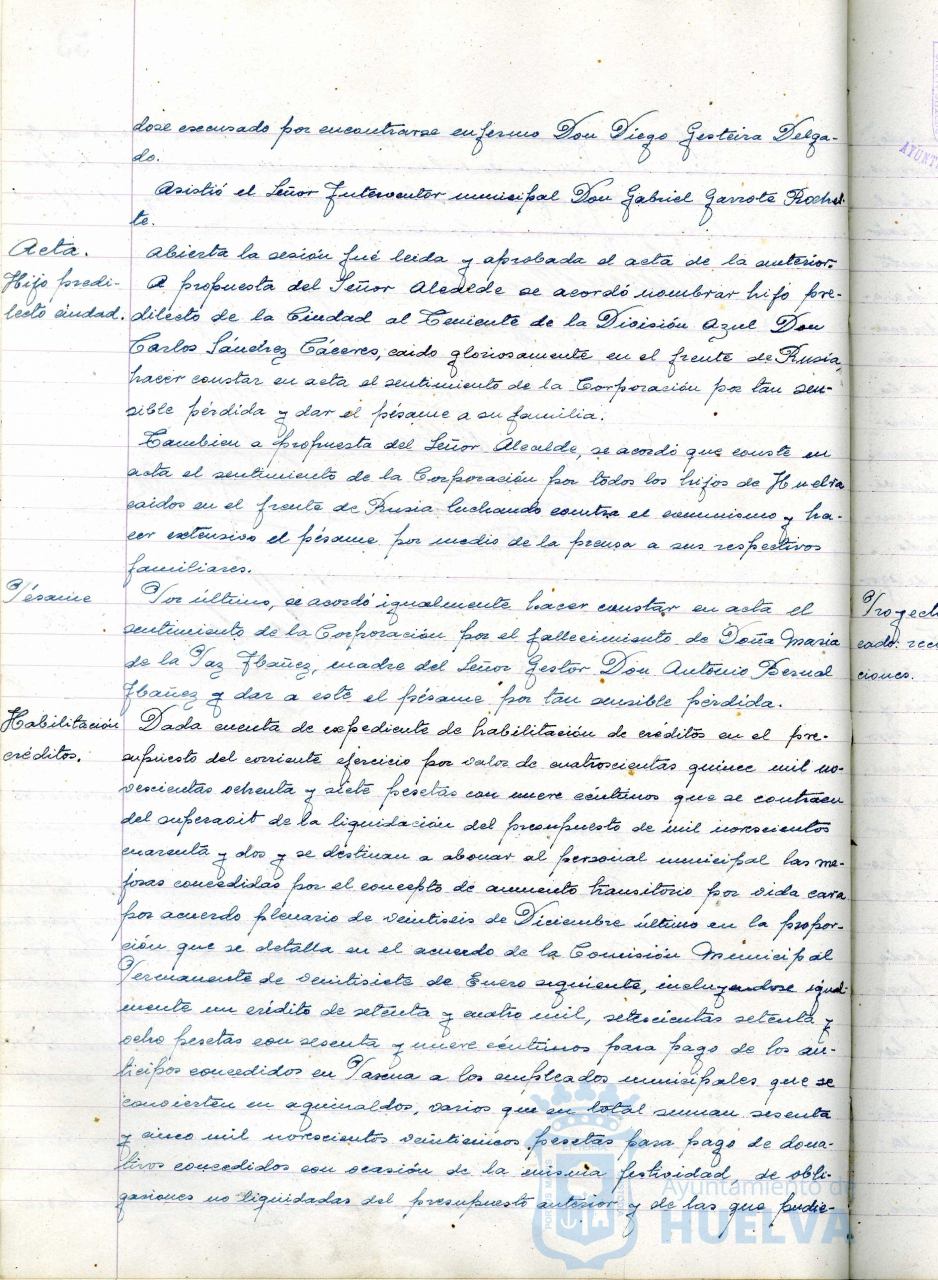 dose excusado por encontrarse enfermo Don Diego Gesteira Delga-
do.
Asistió el Señor Interventor municipal Don Gabriel Garrote Rochel-
te.
Acta.
Abierta la sesión fué leida y aprobada el acta de la anterior.
Hijo predi-
lecto ciudad.
A propuesta del Señor Alcalde se acordó nombrar hijo pre-
dilecto de la Ciudad al Teniente de la División Azul Don
Carlos Sánchez Cáceres, caido gloriosamente en el frente de Rusia,
hacer constar en acta el sentimiento de la Corporación por tan sen-
sible pérdida y dar el pésame a su familia.
Tambien a propuesta del Señor Alcalde, se acordó que conste en
acta el sentimiento de la Corporación por todos los hijos de Huelva
caidos en el frente de Rusia luchando contra el comunismo y ha-
cer extensivo el pésame por medio de la prensa a sus respectivos
familiares.
Pésame
Por último, se acordó igualmente hacer constar en acta el
sentimiento de la Corporación por el fallecimiento de Doña Maria
de la Paz Ibañez, madre del Señor Gestor Don Antonio Bernal
Ibañez y dar a este el pésame por tan sensible pérdida.
Habilitación
créditos.
Dada cuenta de expediente de habilitación de créditos en el pre-
supuesto del corriente ejercicio por valor de cuatroscientas quince mil no-
vescientas ochenta y siete pesetas con nueve céntimos que se contraen
del superavit de la liquidación del presupuesto de mil novescientos
cuarenta y dos y se destinan a abonar al personal municipal las me-
joras concedidas por el concepto de aumento transitorio por vida cara
por acuerdo plenario de veintiseis de Diciembre último en la propor-
ción que se detalla en el acuerdo de la Comisión Municipal
Permanente de veintisiete de Enero siguiente, incluyendose igual-
mente un crédito de setenta y cuatro mil, setescientas setenta y
ocho pesetas con sesenta y nueve céntimos para pago de los an-
ticipos concedidos en Pascua a los empleados municipales que se
convierten en aguinaldos, varios que en total suman sesenta
y cinco mil novescientos veinticinco pesetas para pago de dona-
tivos concedidos con ocasión de la misma festividad, de obli-
gasiones no liquidadas del presupuesto anterior y de las que pudie-
Proyect
ciones.
Ayuntamiento de
HUELVA